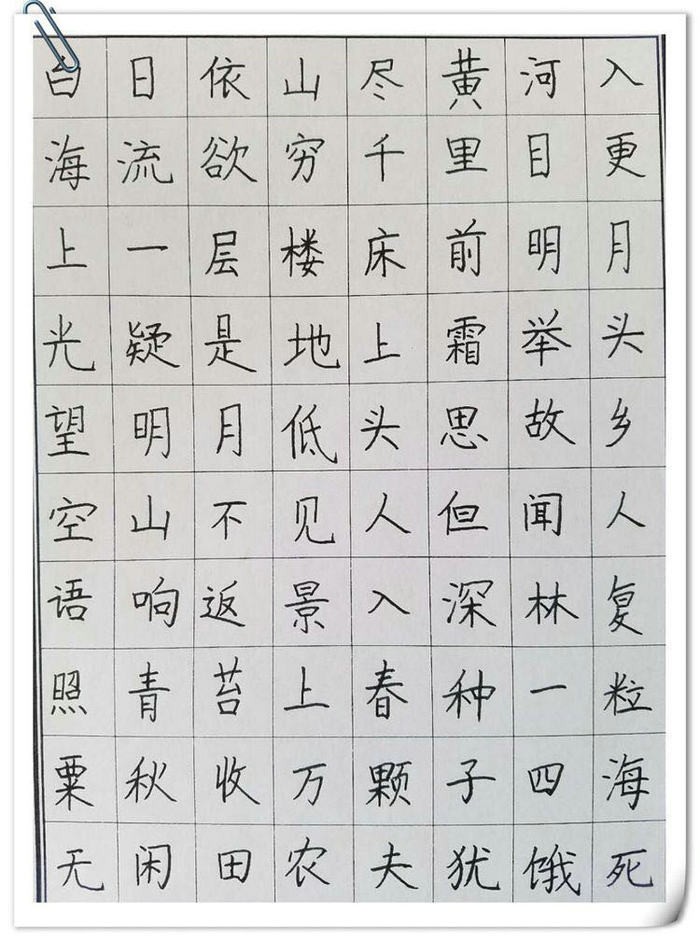 白日依山尽黄河入
海流欲穷千里目更
上一层楼床前明月
光疑是地上霜举头
望明月低头思故乡
空山不见人但闻人
语响返景入深林复
照青苔上春种一粒
粟秋收万颗子四海
无闲田农夫犹饿死